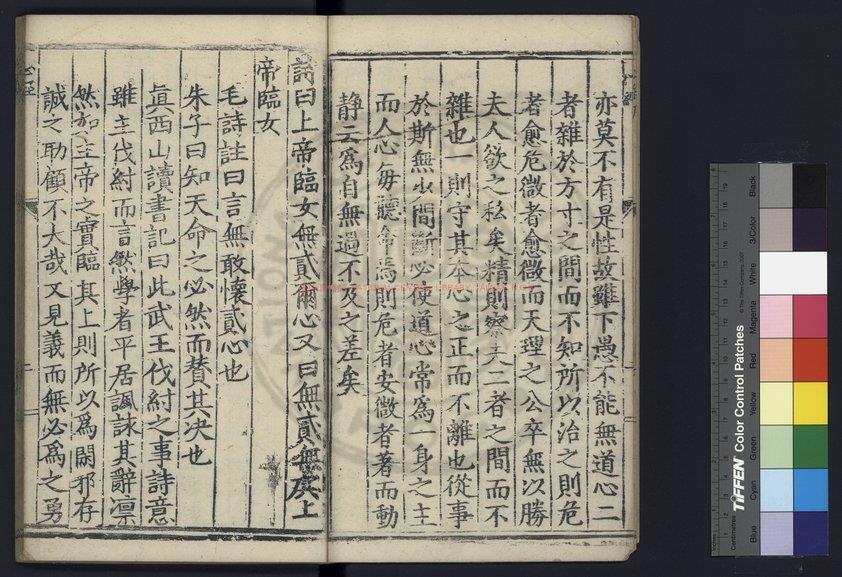 亦莫不有是性故雖下愚不能無道心二
者雜於方寸之間而不知所以治之則危
者愈危微者愈微而天理之公卒無以勝
夫人欲之私矣精則察夫二者之間而不
雜也一則守其本心之正而不離也從事
於斯無少間斷必使道心常爲一身之主
而人心每聽命焉則危者安微者著而動
静云爲自無過不及之差矣
詩曰上帝臨女無貳爾心又曰無貳無虞上
帝臨女
毛詩註曰言無敢懷貳心也
朱子曰知天命之必然而賛其决也
眞西山讀書記曰此武王伐紂之事詩意
雖主伐紂而言然學者平居諷詠其辭凛
然如上帝之實臨其上則所以爲閑邪存
誠之助顧不大哉又見義而無必爲之勇
TIFFEN Color Control Patches
© The Tiffen Company, 2007
Centimetres
Blue
Cyan
Green
Yellow
Red
Magenta
White
3/Color
Black